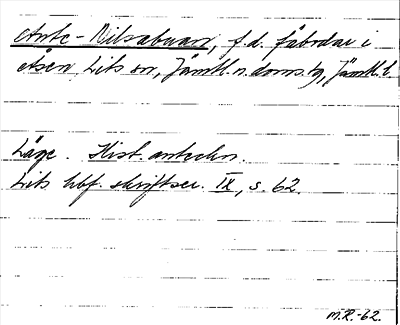 Ante-Nilsabuan, f.d. fäbodar i
Åsen, Lits sn, Jämtl. n. doms. tg, Jämtl. l.
Läge. Hist. anteckn.
Lits hbf. skriftser. IX, s. 62.
M.R.-62.